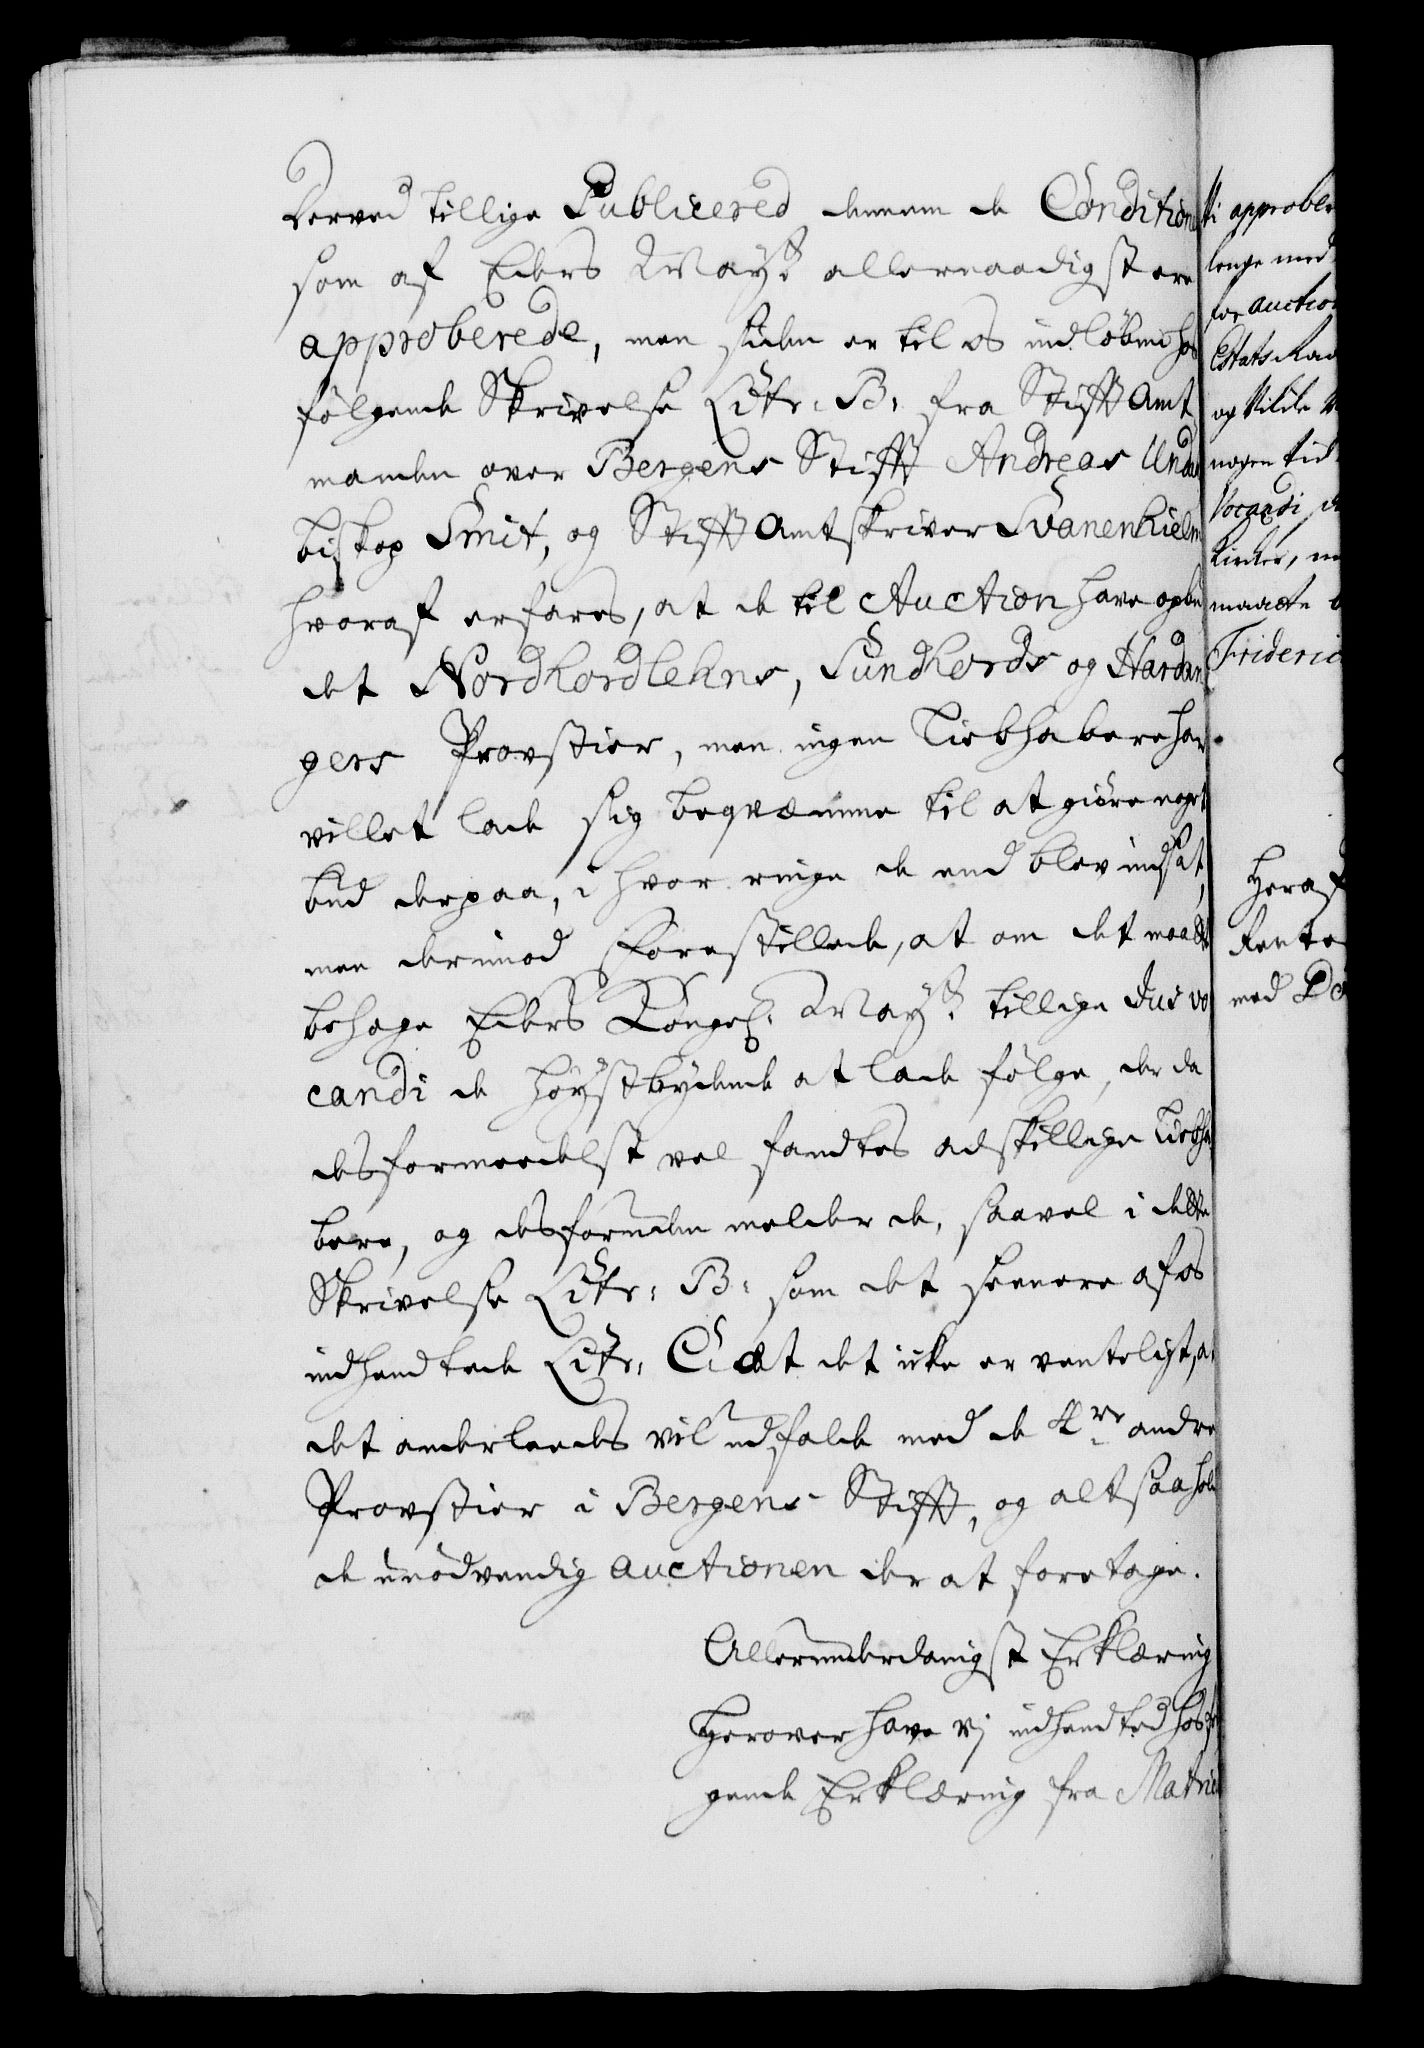 derved tillige Publicered dennem de Conditioner
som af Eders Mayt: allernaadigst ere
approberede, men siden er til os indløbne hos
følgende Skrivelse Litr: B: fra Stifft Amt
manden over Bergens Stifft Andreas Unda
biskop Smit, og Stifft Amtskriver Svanenhielm
hvoraf erfares, at de til Auction have opbu
det Nordhordlehns, Sundhords og Hardan
gers Provstier, men ingen Liebhabere har
villet lade sig beqvæmme til at giøre noget
bud derpaa, i hvor ringe de end blev indsat,
men derimod forestillede, at om det maatte
behage Eders Kongel: Mayt: tillige Jus vo
candi de høystbydende at lade følge, der da
desformedelst vel fandtes adskillige Liebha
bere, og desforuden melder de, saavel i dette
Skrivelse Litr: B: som det seenere af os
indhendtede Litr: C: at det icke er venteligt, at
det anderleedes vil udfalde med de 4re andre
Provstier i Bergens Stifft, og altsaa hol
de unødvendig auctionen der at foretage.
Allerunderdanigst Erklæring
Herover have vj indhendted hosføl
gende Erklæring fra Matric
Vi approbere
lenge med
for auction
Etats Raad
og Vilde
nogen tid
Vocandi
Kirker,
maatte
Frideric
Heraf
Rente
med